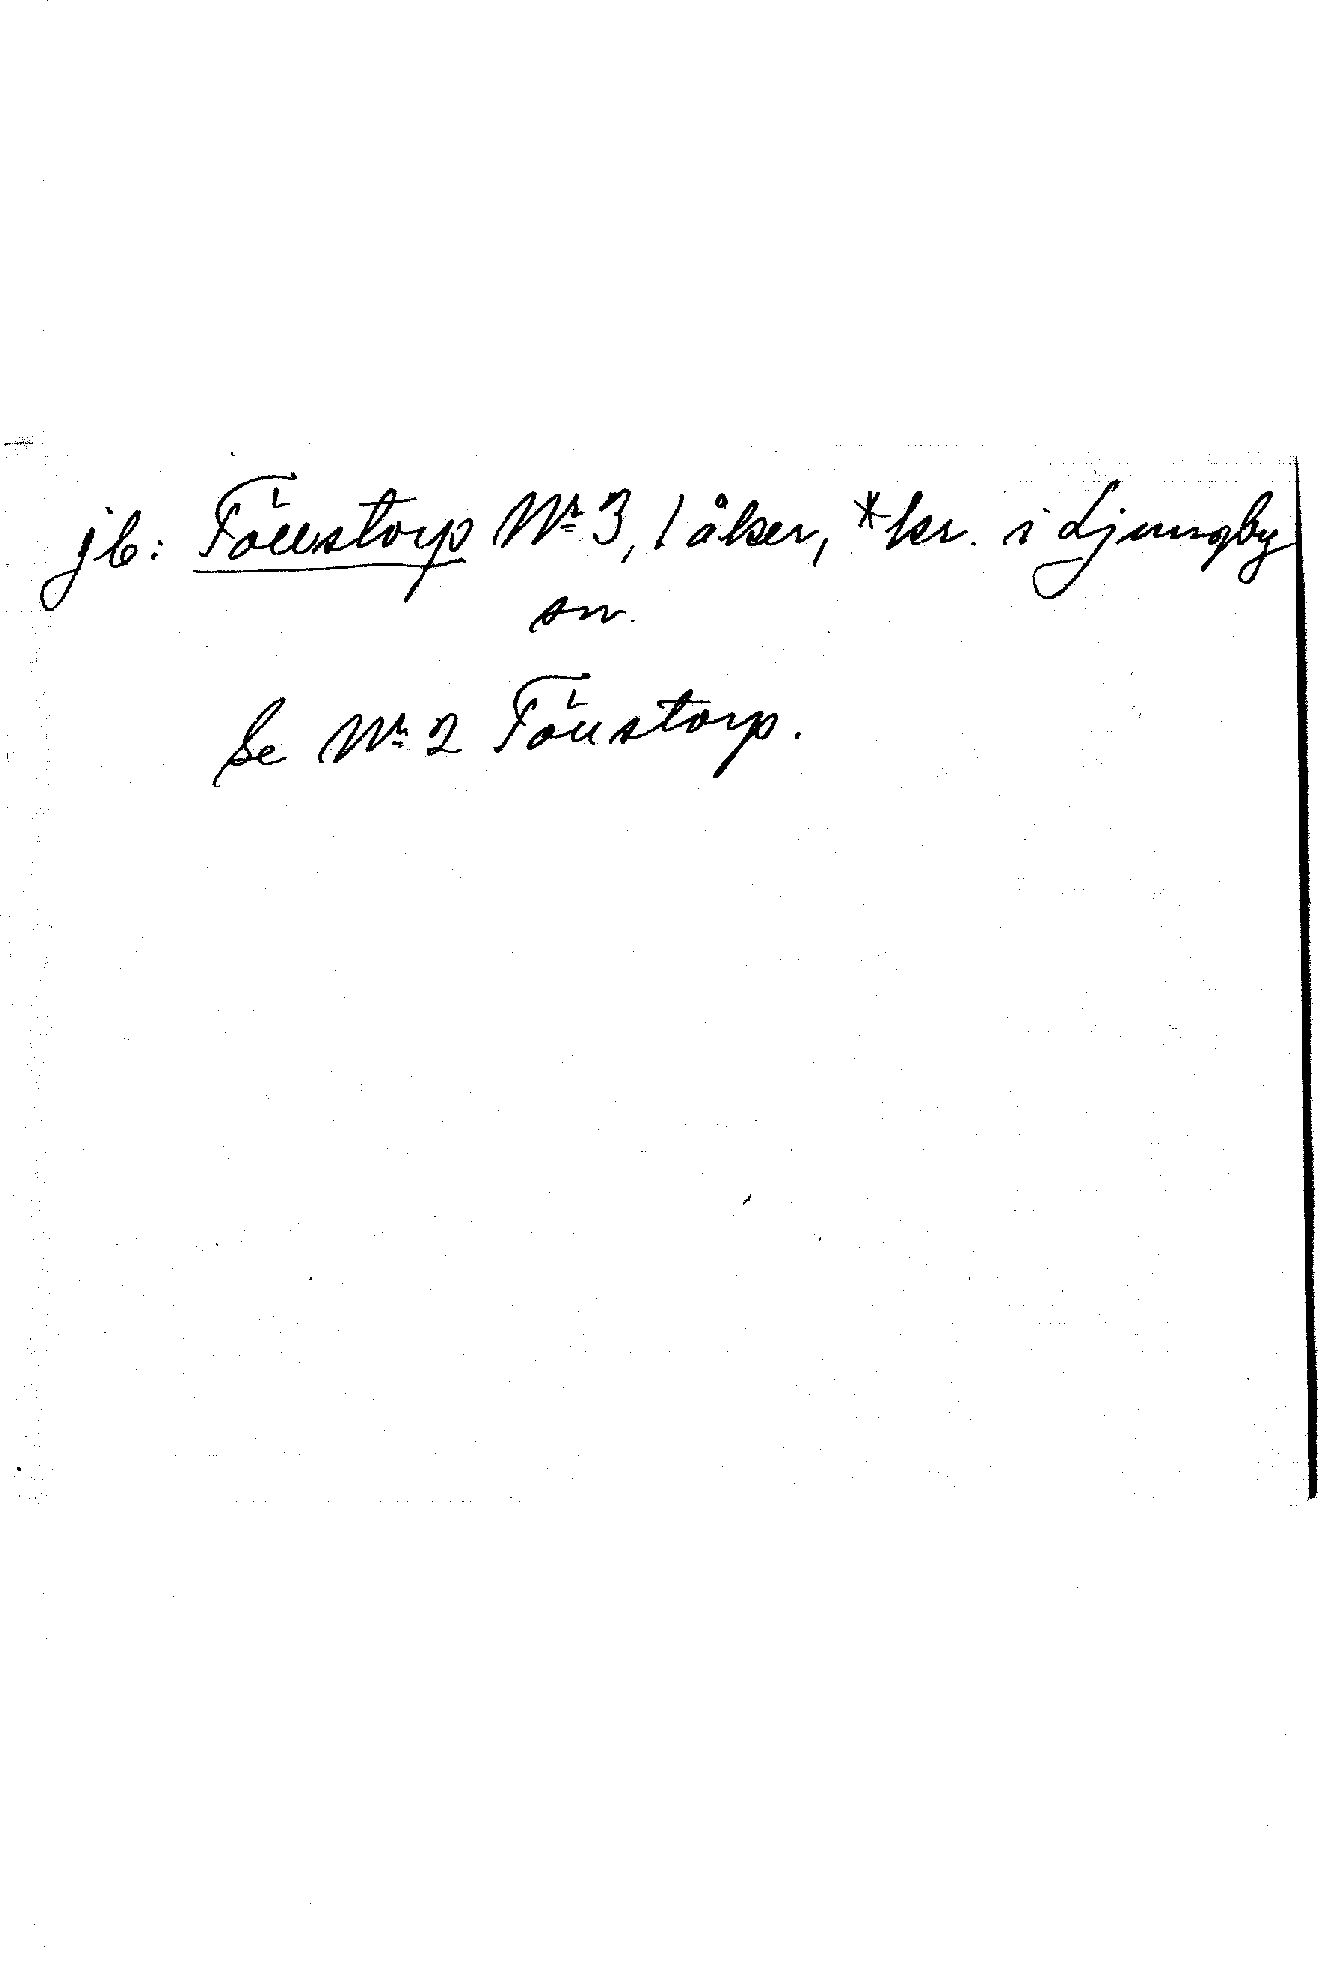 jb: Tönstorp Nr 3, 1 åker, *kr. i Ljungby
sn.
Se Nr 2 Tönstorp.